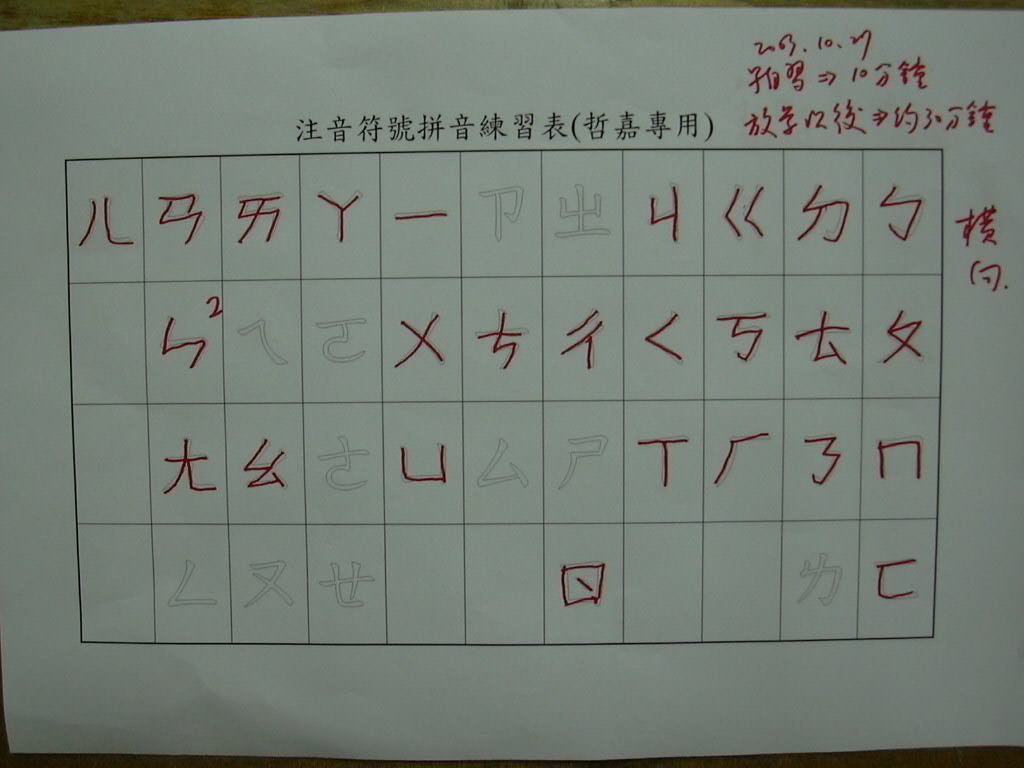 2003.10.27
預習⇒10分鐘
放学以後⇒約30分鐘
注音符號拼音練習表(哲嘉專用)
橫
向.
ㄦ ㄢ ㄞ ㄚ ㄧ ㄗ ㄓ ㄐ ㄍ ㄉ ㄅ
ㄣ2 ㄟ ㄛ ㄨ ㄘ ㄔ ㄑ ㄎ ㄊ ㄆ
ㄤ ㄠ ㄜ ㄩ ㄙ ㄕ ㄒ ㄏ ㄋ ㄇ
ㄥ ㄡ ㄝ ㄖ ㄌ ㄈ